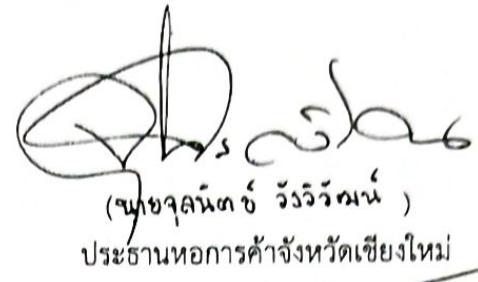 (นายจุลนิตย์ วังวิวัฒน์)
ประธานหอการค้าจังหวัดเชียงใหม่